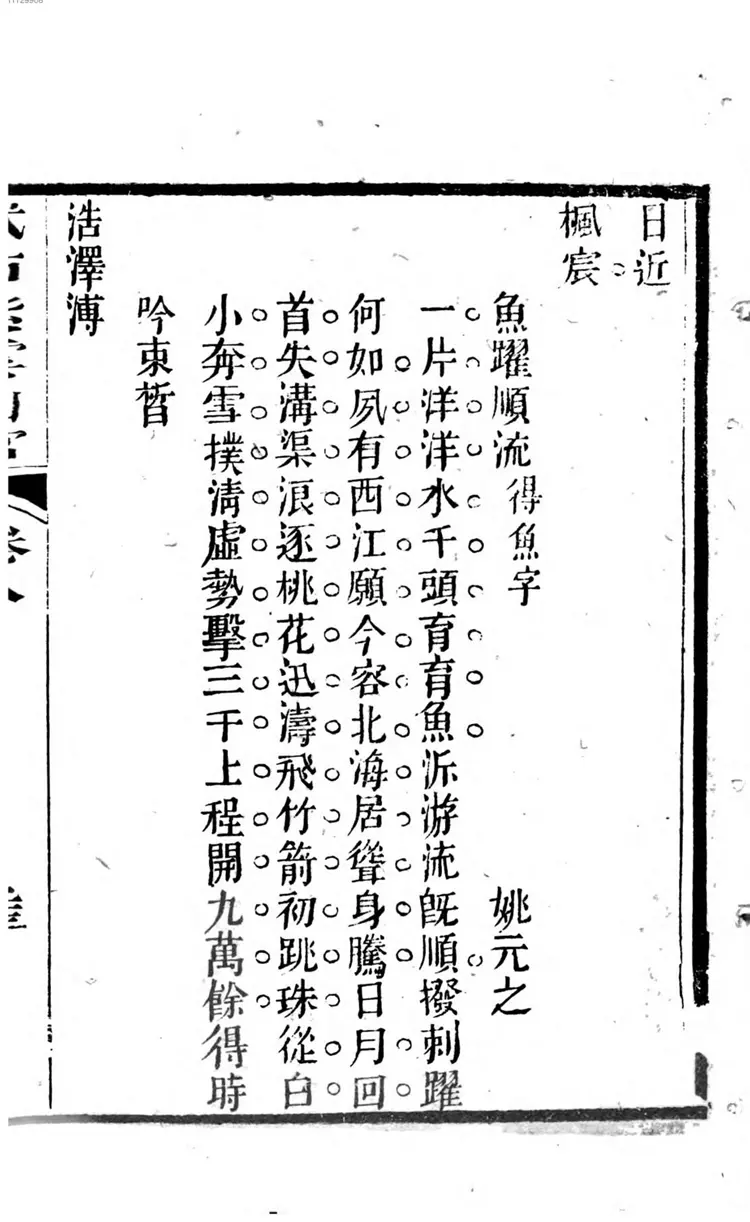 11129908
日近
楓宸
魚躍順流得魚字 姚元之
一片洋洋水千頭育育魚泝游流旣順撥刺躍
何如夙有西江願今容北海居聳身騰日月回
首失溝渠浪逐桃花迅濤飛竹箭初跳珠從白
小奔雪撲淸虛勢擊三千上程開九萬餘得時
吟束晳
浩澤溥
卷八